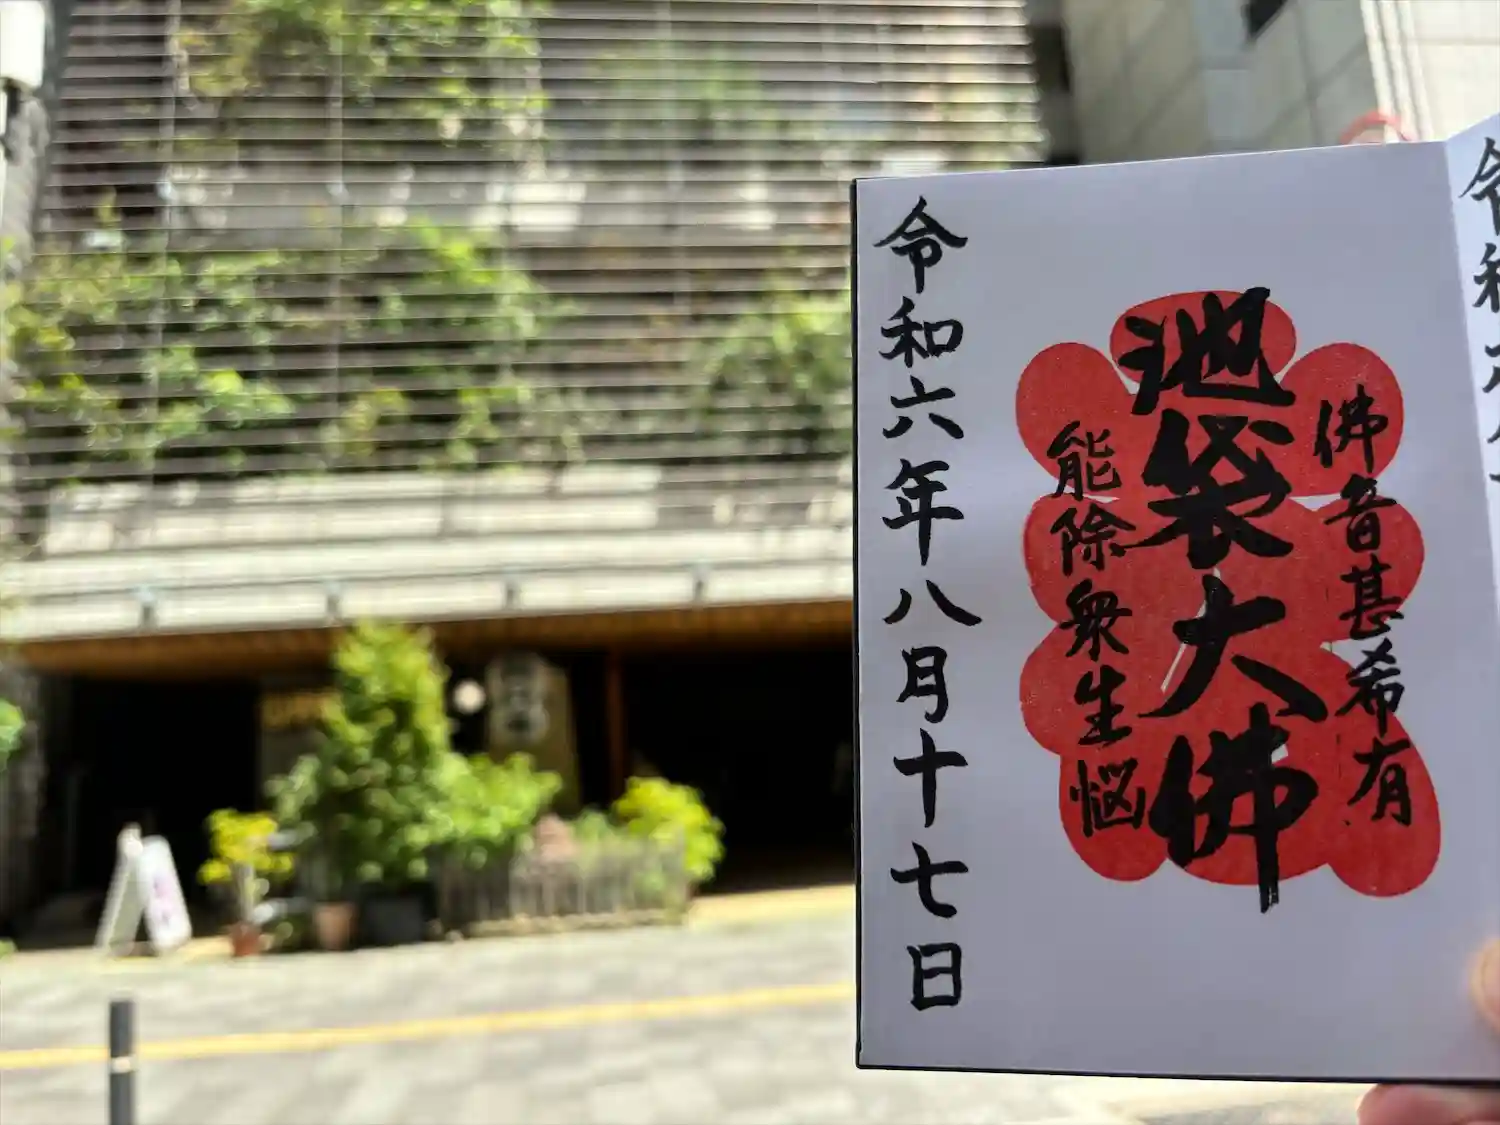 佛音甚希有
池袋大佛
能除衆生悩
令和六年八月十七日
令和